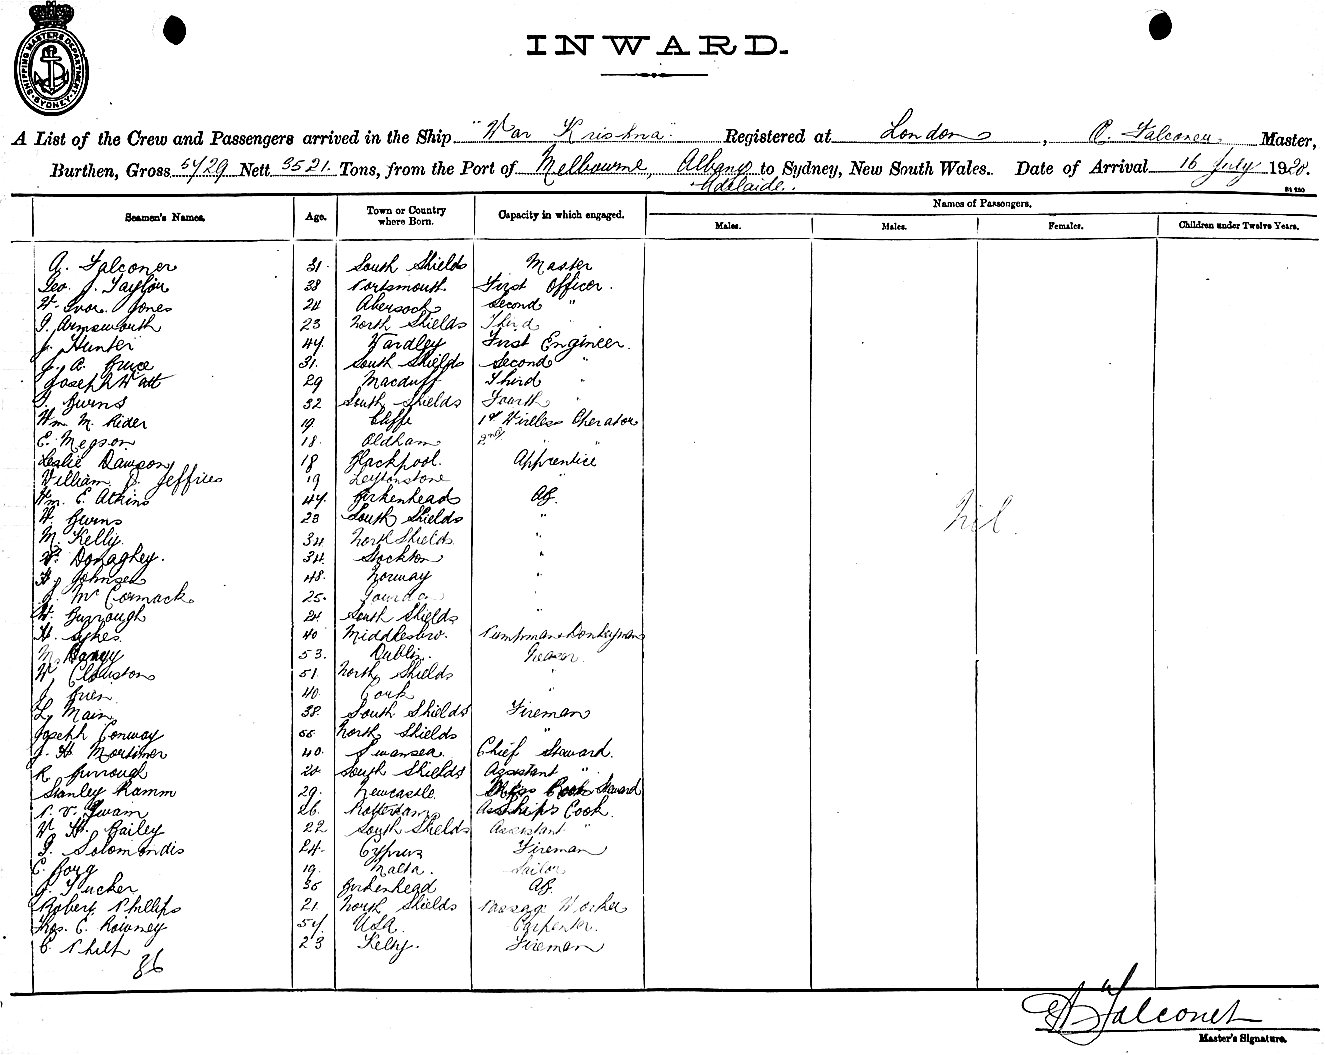 SHIPPING MASTERS DEPARTMENT SYDNEY
INWARD.
A List of the Crew and Passengers arrived in the Ship "War Krishna" Registered at London, A. Falconer Master,
Burthen, Gross 5729 Nett 3521 Tons, from the Port of Melbourne, Albany to Sydney, New South Wales. Date of Arrival 16 July 1920.
Adelaide.
Seamen's Names. Age. Town or Country where Born. Capacity in which engaged. Names of Passengers.
Males. Males. Females. Children under Twelve Years.
A. Falconer 31 South Shields Master
Geo. J. Taylor 38 Portsmouth First Officer.
W. Ivor Jones 24 Abersoch Second "
J. Armsworth 23 North Shields Third "
J. Hunter 44 Yardley First Engineer.
J. A. Bruce 31. South Shields Second "
Joseph Watt 29 Macduff Third "
J. Burns 32 South Shields Fourth "
Wm. M. Rider 19 Cliffe 1st Wireless Operator
E. Megson 18. Oldham 2nd " "
Leslie Dawson 18 Blackpool. Apprentice
William J. Jeffries 19 Leytonstone "
Wm. E. Atkins 44. Birkenhead AB.
W. Burns 23 South Shields "
M. Kelly. 34 North Shields "
W. Donaghey. 34. Stockton "
H. Johnsen 48. Norway "
J. McCormack. 25. "
W. Burrough 24 South Shields "
H. Sykes. 40 Middlesbro. Pumpman & Donkeyman
M. 53. Dublin. Greaser.
W. Clouston 51. North Shields "
J. Brien 40. Cork "
L. Main 38. South Shields Fireman
Joseph Conway North Shields "
J. H. Mortimer 40. Swansea. Chief Steward.
R. Burrough 20 South Shields Assistant "
Stanley Ramm 29. Newcastle. Steward
26. Rotterdam Ships Cook.
W. H. Bailey 22 South Shields Assistant "
P. Solomondis 24. Cyprus Fireman
C. Borg 19. Malta. Sailor
J. Tucker 36 Birkenhead AB.
Robert Phillips 21 North Shields Passage Worker
Thos. C. Rowney 54. USA. Carpenter.
C. Philp 23 Selby. Fireman
36
Nil.
A Falconer
Master's Signature.